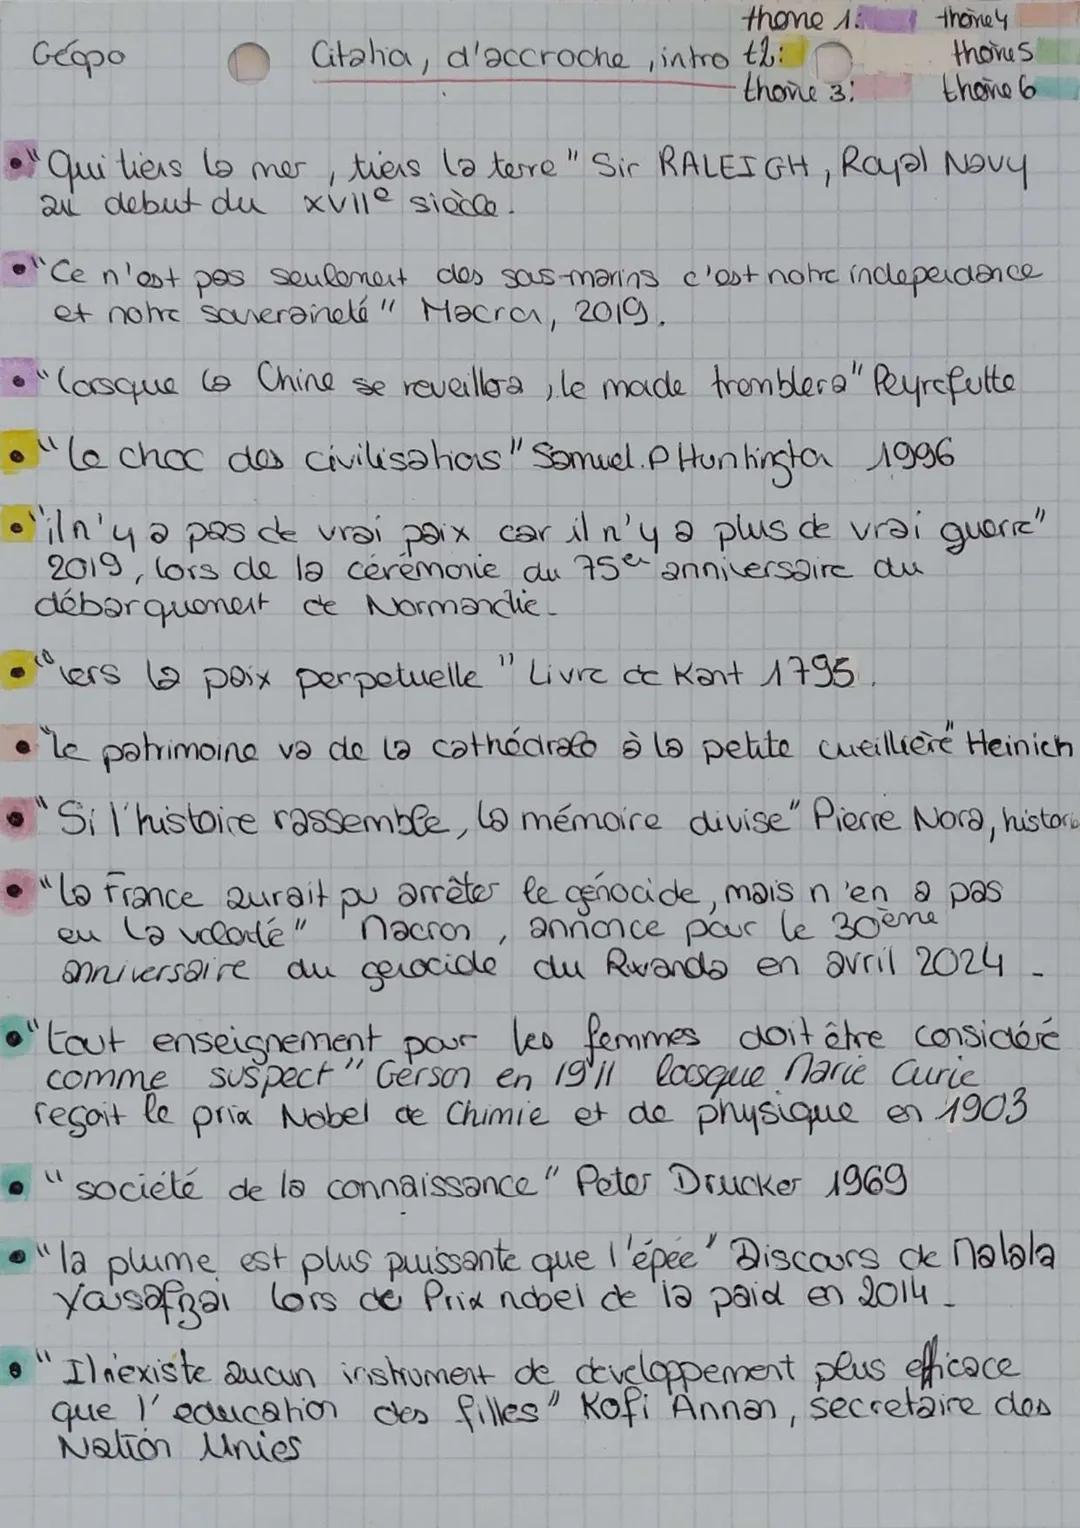 Géopo
Citation, d'accroche, intro
thème 1: thème 4
t2: thème 5
thème 3: thème 6
• "Qui tiens la mer, tiens la terre" Sir RALEIGH, Royal Navy
au debut du XVIIe siècle.
• "Ce n'est pas seulement des sous-marins c'est notre independance
et notre souveraineté" Macron, 2019.
• "lorsque la Chine se reveillera, le monde tremblera" Peyrefitte
• "le choc des civilisations" Samuel.P Huntington 1996
• "il n'y a pas de vrai paix car il n'y a plus de vrai guerre"
2019, lors de la cérémonie du 75e anniversaire du
débarquement de Normandie.
• "vers la paix perpetuelle" Livre de Kant 1795.
• "le patrimoine va de la cathédrale à la petite cueillière" Heinich
• "Si l'histoire rassemble, la mémoire divise" Pierre Nora, histori
• "la France aurait pu arrêter le génocide, mais n'en a pas
eu la volonté" Macron, annonce pour le 30ème
anniversaire du génocide du Rwanda en avril 2024.
• "tout enseignement pour les femmes doit être considéré
comme suspect" Gerson en 1911 lorsque Marie Curie
reçoit le prix Nobel de Chimie et de physique en 1903
• "société de la connaissance" Peter Drucker 1969
• "la plume est plus puissante que l'épée" Discours de Malala
Yousafzai lors de Prix nobel de la paid en 2014.
• "Il n'existe aucun instrument de developpement plus efficace
que l'education des filles" Kofi Annan, secretaire des
Nation Unies